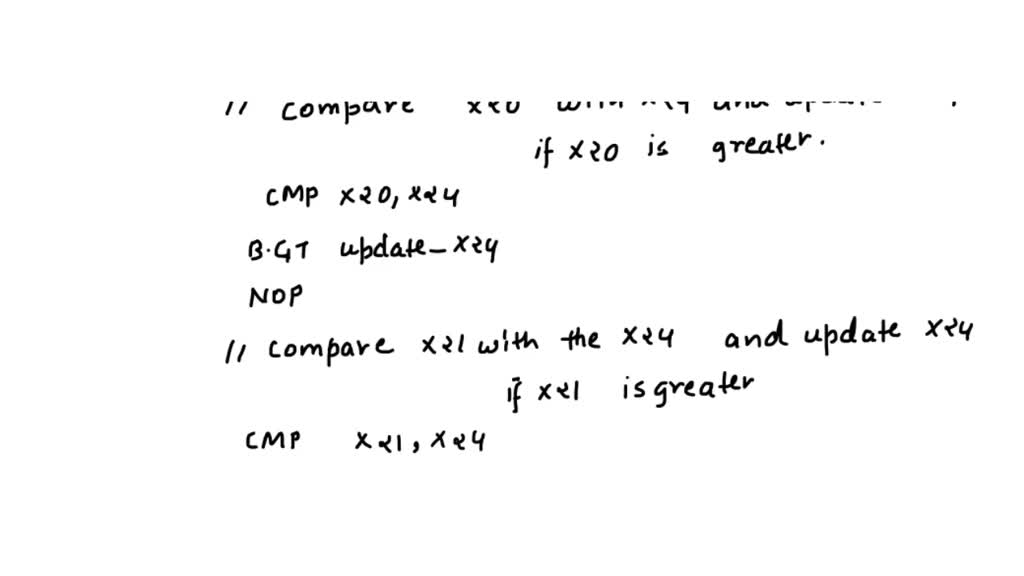 // compare x20 with x24 and update
if x20 is greater.
CMP x20, x24
B.GT update_x24
NOP
// compare x21 with the x24 and update x24
if x21 is greater
CMP x21, x24